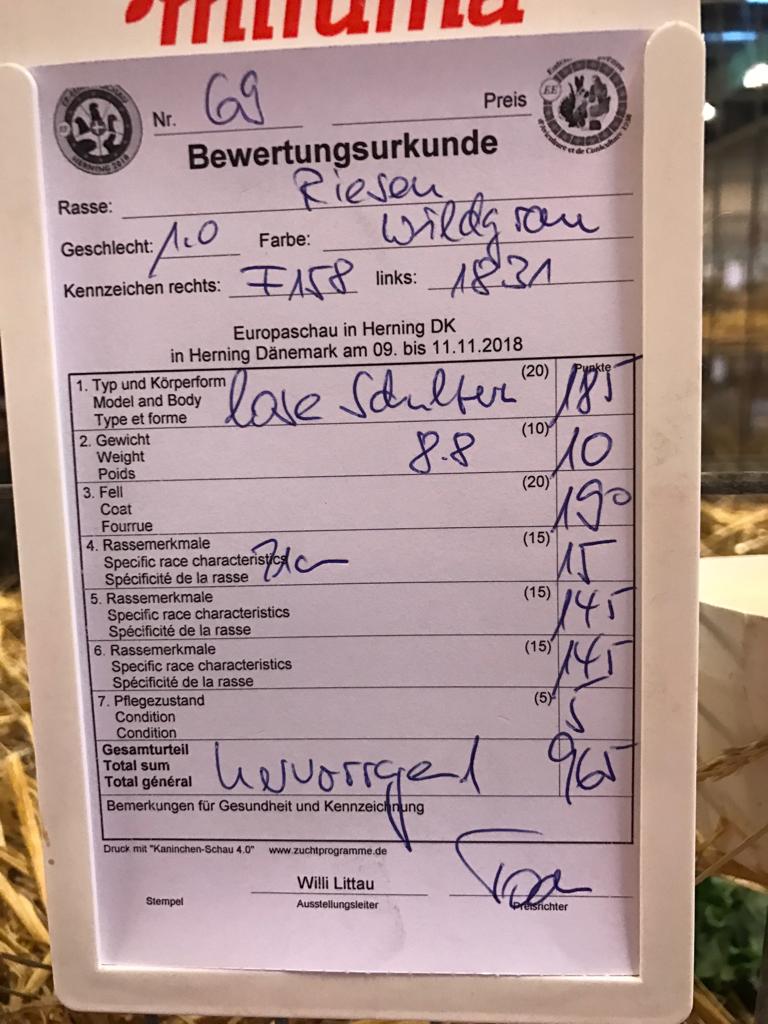 Nr. 69 Preis
Bewertungsurkunde
Rasse: Riesen
Geschlecht: 1.0 Farbe: Wildgrau
Kennzeichen rechts: F158 links: 1831
Europaschau in Herning DK
in Herning Dänemark am 09. bis 11.11.2018
Punkte
1. Typ und Körperform (20)
Model and Body lose Schulter 185
Type et forme
2. Gewicht (10)
Weight 8.8 10
Poids
3. Fell (20)
Coat 190
Fourrue
4. Rassemerkmale (15)
Specific race characteristics 15
Spécificité de la rasse
5. Rassemerkmale (15)
Specific race characteristics 145
Spécificité de la rasse
6. Rassemerkmale (15)
Specific race characteristics 145
Spécificité de la rasse
7. Pflegezustand (5)
Condition 5
Condition
Gesamturteil
Total sum hervorragend 965
Total général
Bemerkungen für Gesundheit und Kennzeichnung
Druck mit "Kaninchen-Schau 4.0" www.zuchtprogramme.de
Willi Littau
Stempel Ausstellungsleiter Preisrichter